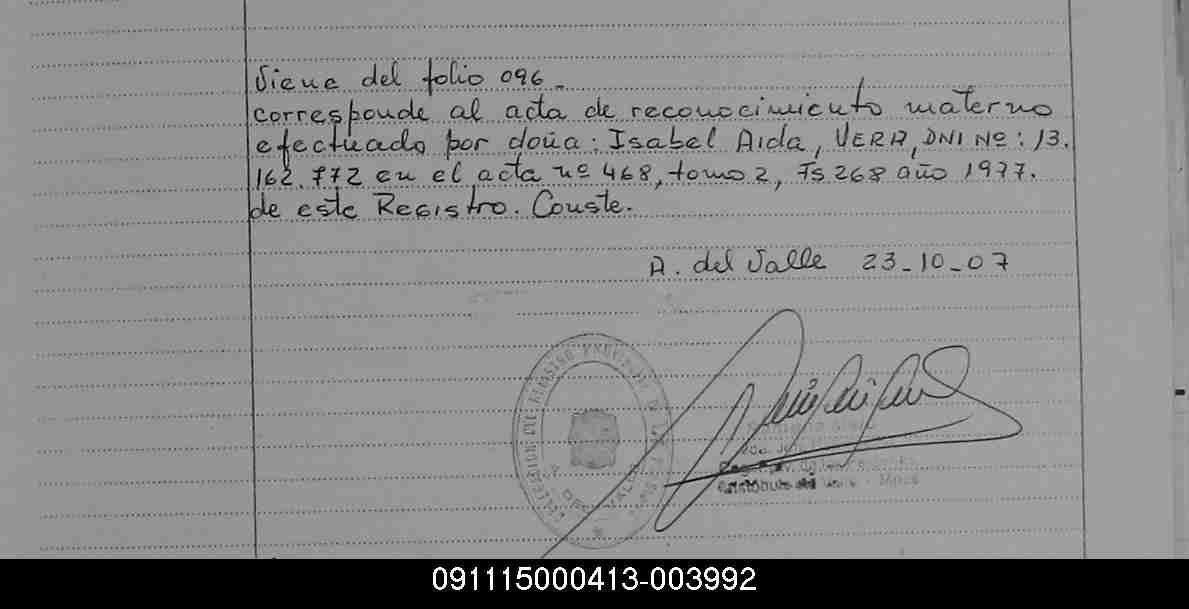 Viene del folio 096_
corresponde al acta de reconocimiento materno
efectuado por doña: Isabel Aida, VERA, DNI Nº: 13.
162.772 en el acta nº 468, tomo 2, Fs 268 año 1977.
de este Registro. Conste.
A. del Valle 23-10-07
DELEGACION DEL REGISTRO PROVINCIAL DE LAS PERSONAS
A. DEL VALLE
091115000413-003992